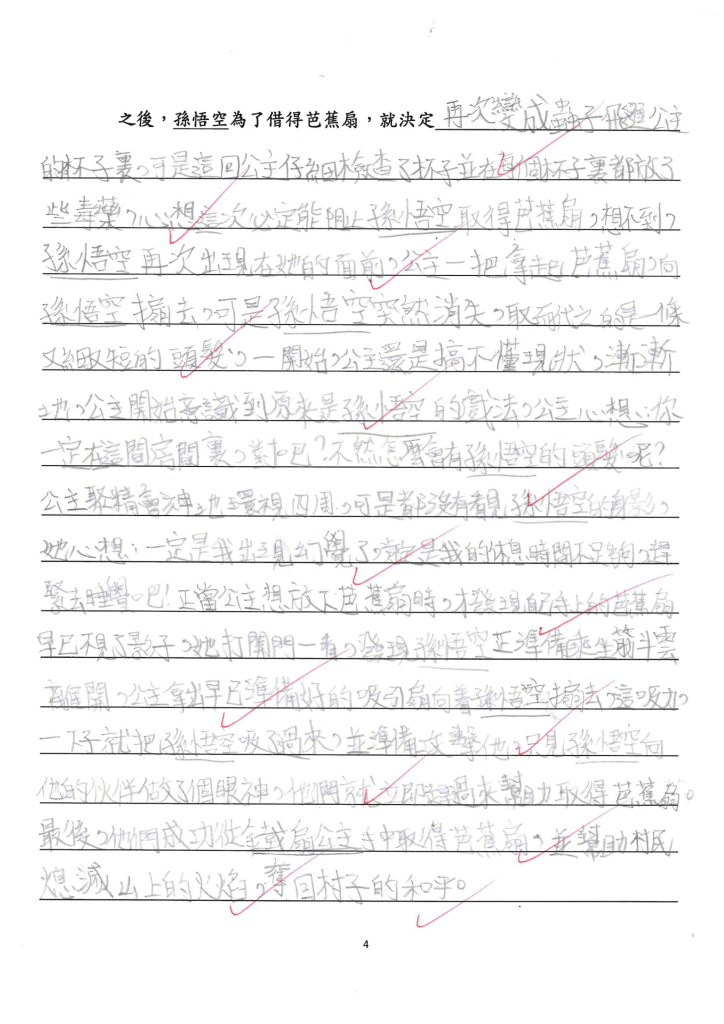 之後，孫悟空為了借得芭蕉扇，就決定再次變成蟲子飛進公主
的杯子裏，可是這回公主仔細檢查了杯子並在每個杯子裏都放了
些毒藥，心想這次必定能阻止孫悟空取得芭蕉扇，想不到，
孫悟空再次出現在她的面前，公主一把拿起芭蕉扇，向
孫悟空搧去，可是孫悟空突然消失，取而代之的是一條
又細又短的頭髮，一開始，公主還是搞不懂現狀，漸漸
地，公主開始意識到原來是孫悟空的戲法，公主心想：你
一定在這間房間裏，對吧？不然怎麼會有孫悟空的頭髮呢？
公主聚精會神地環視四周，可是都沒有看見孫悟空的身影，
她心想：一定是我出現幻覺了，肯定是我的休息時間不足夠，趕
緊去睡覺吧！正當公主想放下芭蕉扇時，才發現自己手上的芭蕉扇
早已不見了影子，她打開門一看，發現孫悟空正準備乘坐筋斗雲
離開，公主拿出早已準備好的吸引扇向著孫悟空搧去，這吸力，
一下子就把孫悟空吸了過來，並準備攻擊他，只見孫悟空向
他的伙伴做了個眼神，他們就立即趕過來幫助取得芭蕉扇。
最後，他們成功從鐵扇公主手中取得芭蕉扇，並幫助村民
熄滅山上的火焰，奪回村子的和平。
4